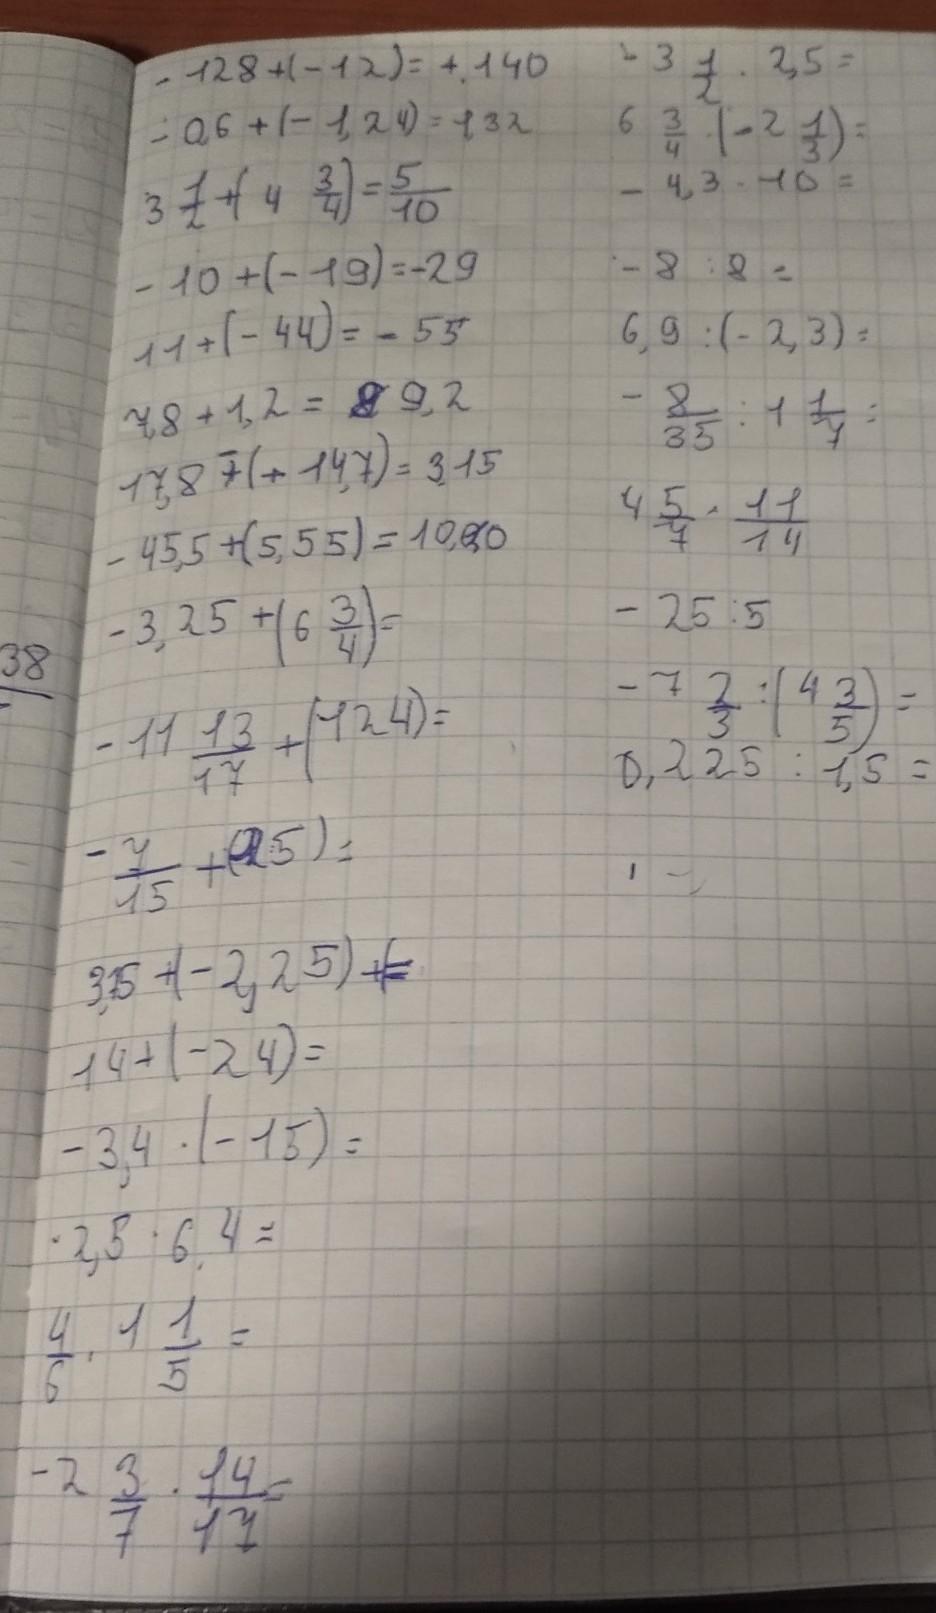 - 128+(-12)= +.140
- 0,6+(-1,24)=1,32
3 1/2 +( 4 3/4)= 5/10
- 10+(-19)=-29
11+(-44)= - 55
7,8+1,2= 9,2
17,8 +(+ 14,7)= 3,15
- 45,5+(5,55)=
-3,25+(6 3/4)=
-11 13/17 +(124)=
- 7/15 + 5)=
+(-2,25)
14+(-24)=
-3,4 ·(-15)=
·2,5 · 6,4=
4/6 · 1 1/5 =
-2 3/7 · 14/17 =
38
- 3 1/2 · 2,5=
6 3/4 ·(-2 1/3)=
- 4,3 · 10 =
-8 : 8 =
6,9 :(- 2,3)=
- 8/35 : 1 1/7 =
4 5/7 · 11/14
- 25:5
-7 2/3 :( 4 3/5) =
0,225 : 1,5 =